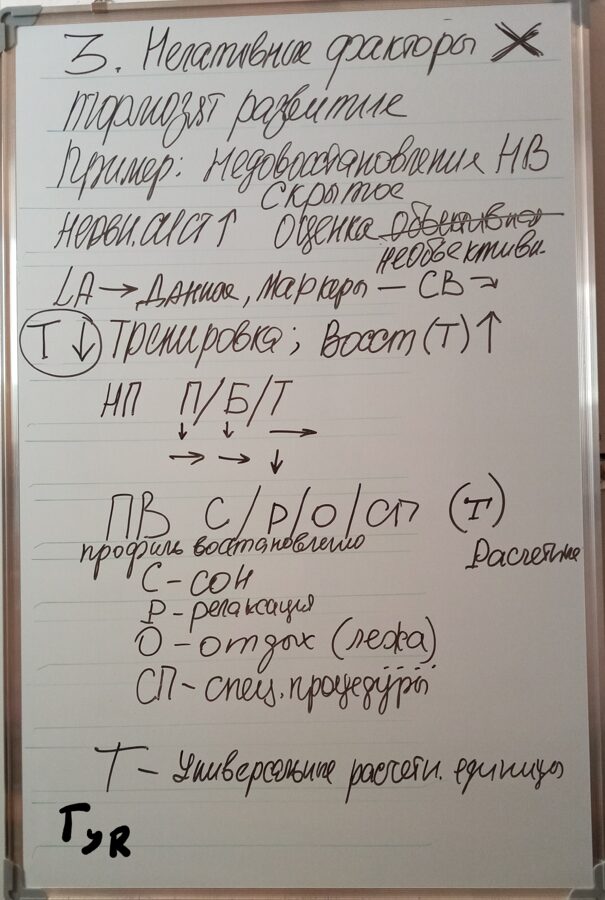 3. Негативные факторы
тормозят развитие
Пример: Недовосстановление НВ
скрытое
нервн. сист ↑ оценка объективная
необъективн.
LA → Данные, маркеры — СВ →
Т ↓ Тренировка; Восст (Т) ↑
НП П/Б/Т
↓ ↓ →
→ → ↓
ПВ С/Р/О/СП (Т)
профиль восстановлено Расчетные
С - сон
Р - релаксация
О - отдых (лежа)
СП - спец. процедуры
Т - Универсальные расчетн. единицы
ТУR